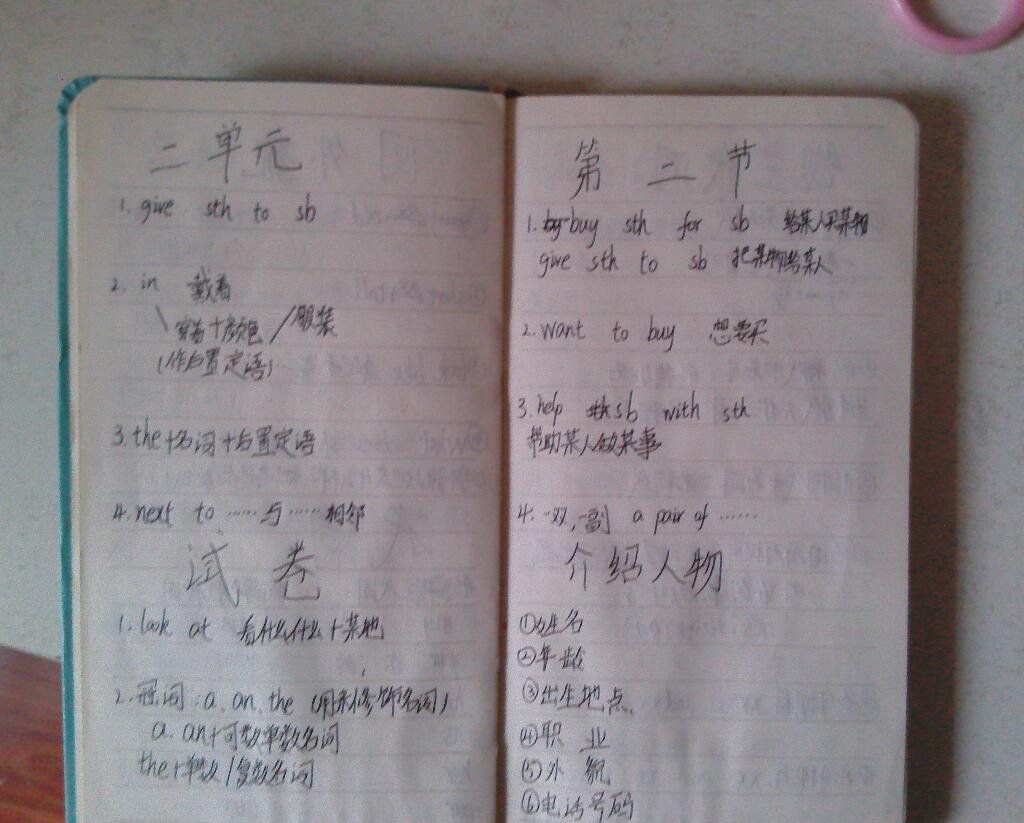 二单元
1. give sth to sb
2. in 戴着
穿着+颜色/服装
(作后置定语)
3. the+名词+后置定语
4. next to ……与……相邻
试卷
1. look at 看什么什么+某地
2. 冠词:a. an. the (用来修饰名词)
a. an+可数单数名词
the+单数/复数名词
第二节
1. buy sth for sb 给某人买某物
give sth to sb 把某物给某人
2. want to buy 想要买
3. help sb with sth
帮助某人做某事
4. 一双,一副 a pair of ……
介绍人物
①姓名
②年龄
③出生地点
④职业
⑤外貌
⑥电话号码